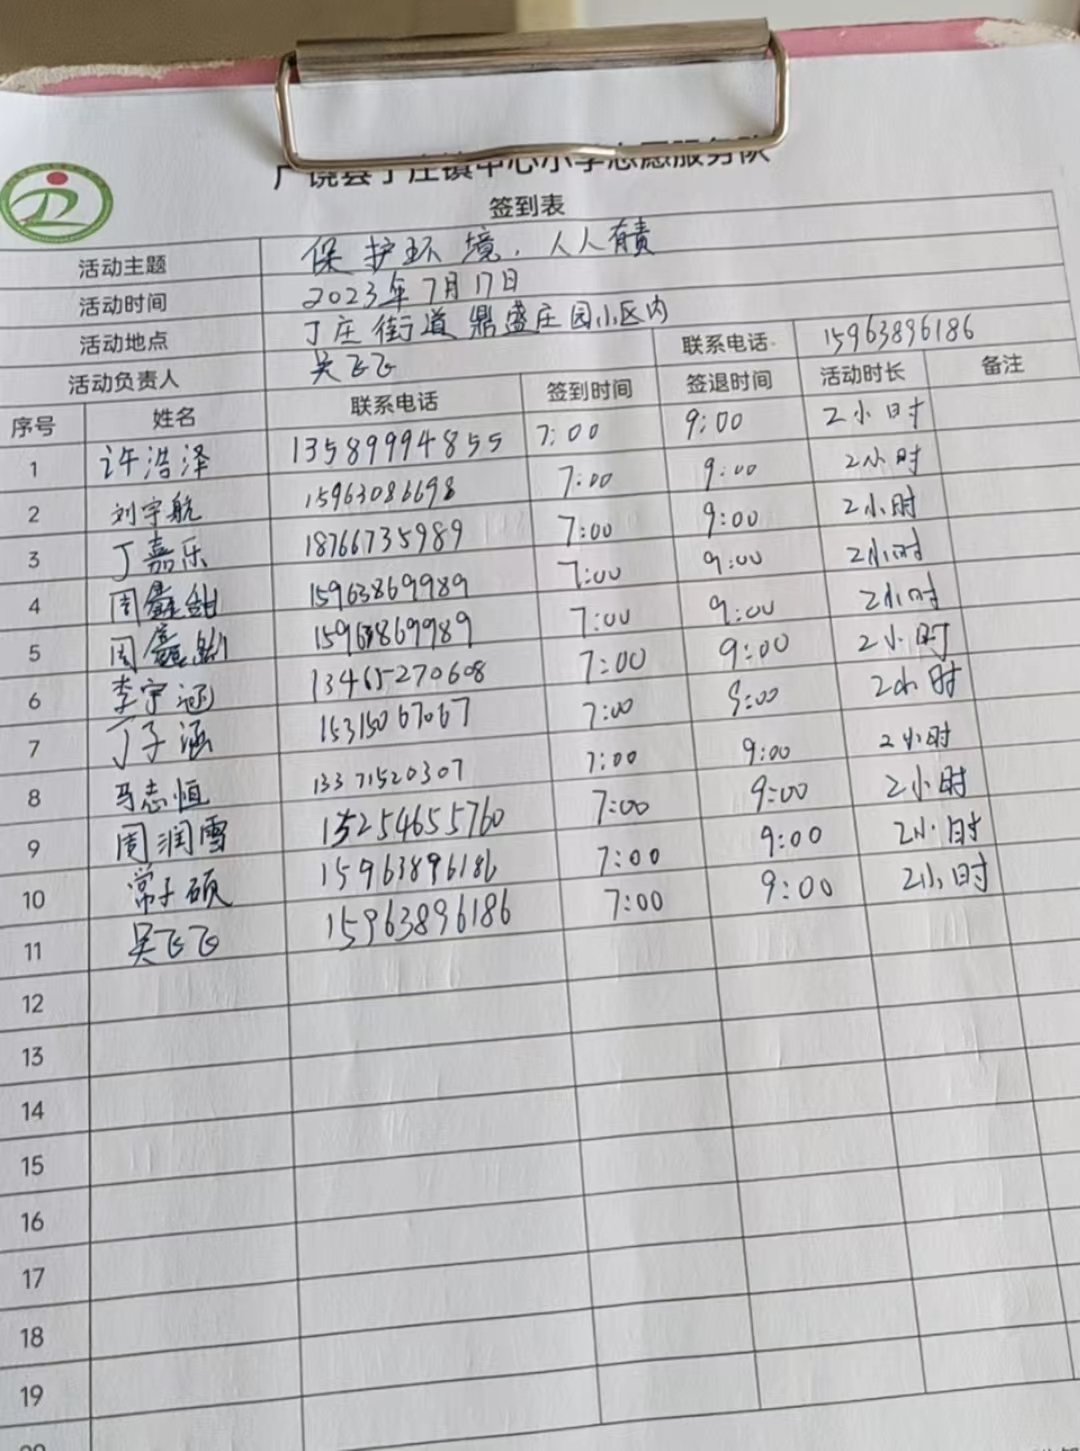 广饶县丁庄镇中心小学志愿服务队
签到表
活动主题 保护环境，人人有责
活动时间 2023年7月17日
活动地点 丁庄街道鼎盛庄园小区内
活动负责人 吴飞飞 联系电话 15963896186
序号 姓名 联系电话 签到时间 签退时间 活动时长 备注
1 许浩泽 13589994855 7:00 9:00 2小时
2 刘宇航 15963086698 7:00 9:00 2小时
3 丁嘉乐 18766735989 7:00 9:00 2小时
4 周鑫 15963869989 7:00 9:00 2小时
5 周鑫 15963869989 7:00 9:00 2小时
6 李宇涵 13465270608 7:00 9:00 2小时
7 丁子涵 15315067067 7:00 9:00 2小时
8 马志恒 13371520307 7:00 9:00 2小时
9 周润雪 15254655760 7:00 9:00 2小时
10 常子硕 15963896186 7:00 9:00 2小时
11 吴飞飞 15963896186 7:00 9:00 2小时
12
13
14
15
16
17
18
19